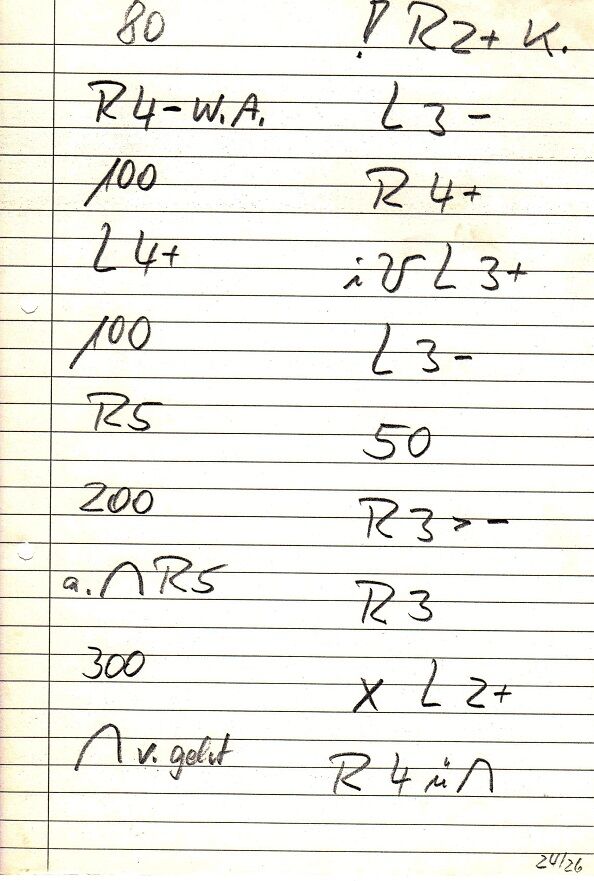 80
R4-W.A.
100
L4+
100
R5
200
a. ∩ R5
300
∩ v. geht
! R2+ K.
L3-
R4+
L3+
L3-
50
R3>-
R3
X L2+
R4 ü ∩
24/26